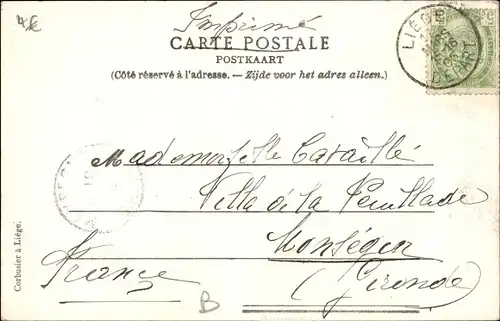 4€
Imprimé
CARTE POSTALE
POSTKAART
(Côté réservé à l'adresse. — Zijde voor het adres alleen.)
LIÉGE
DÉPART
Mademoiselle Cavaillé
Villa de la Feuillade
Monségur
(Gironde)
France
Corbusier à Liége.
B